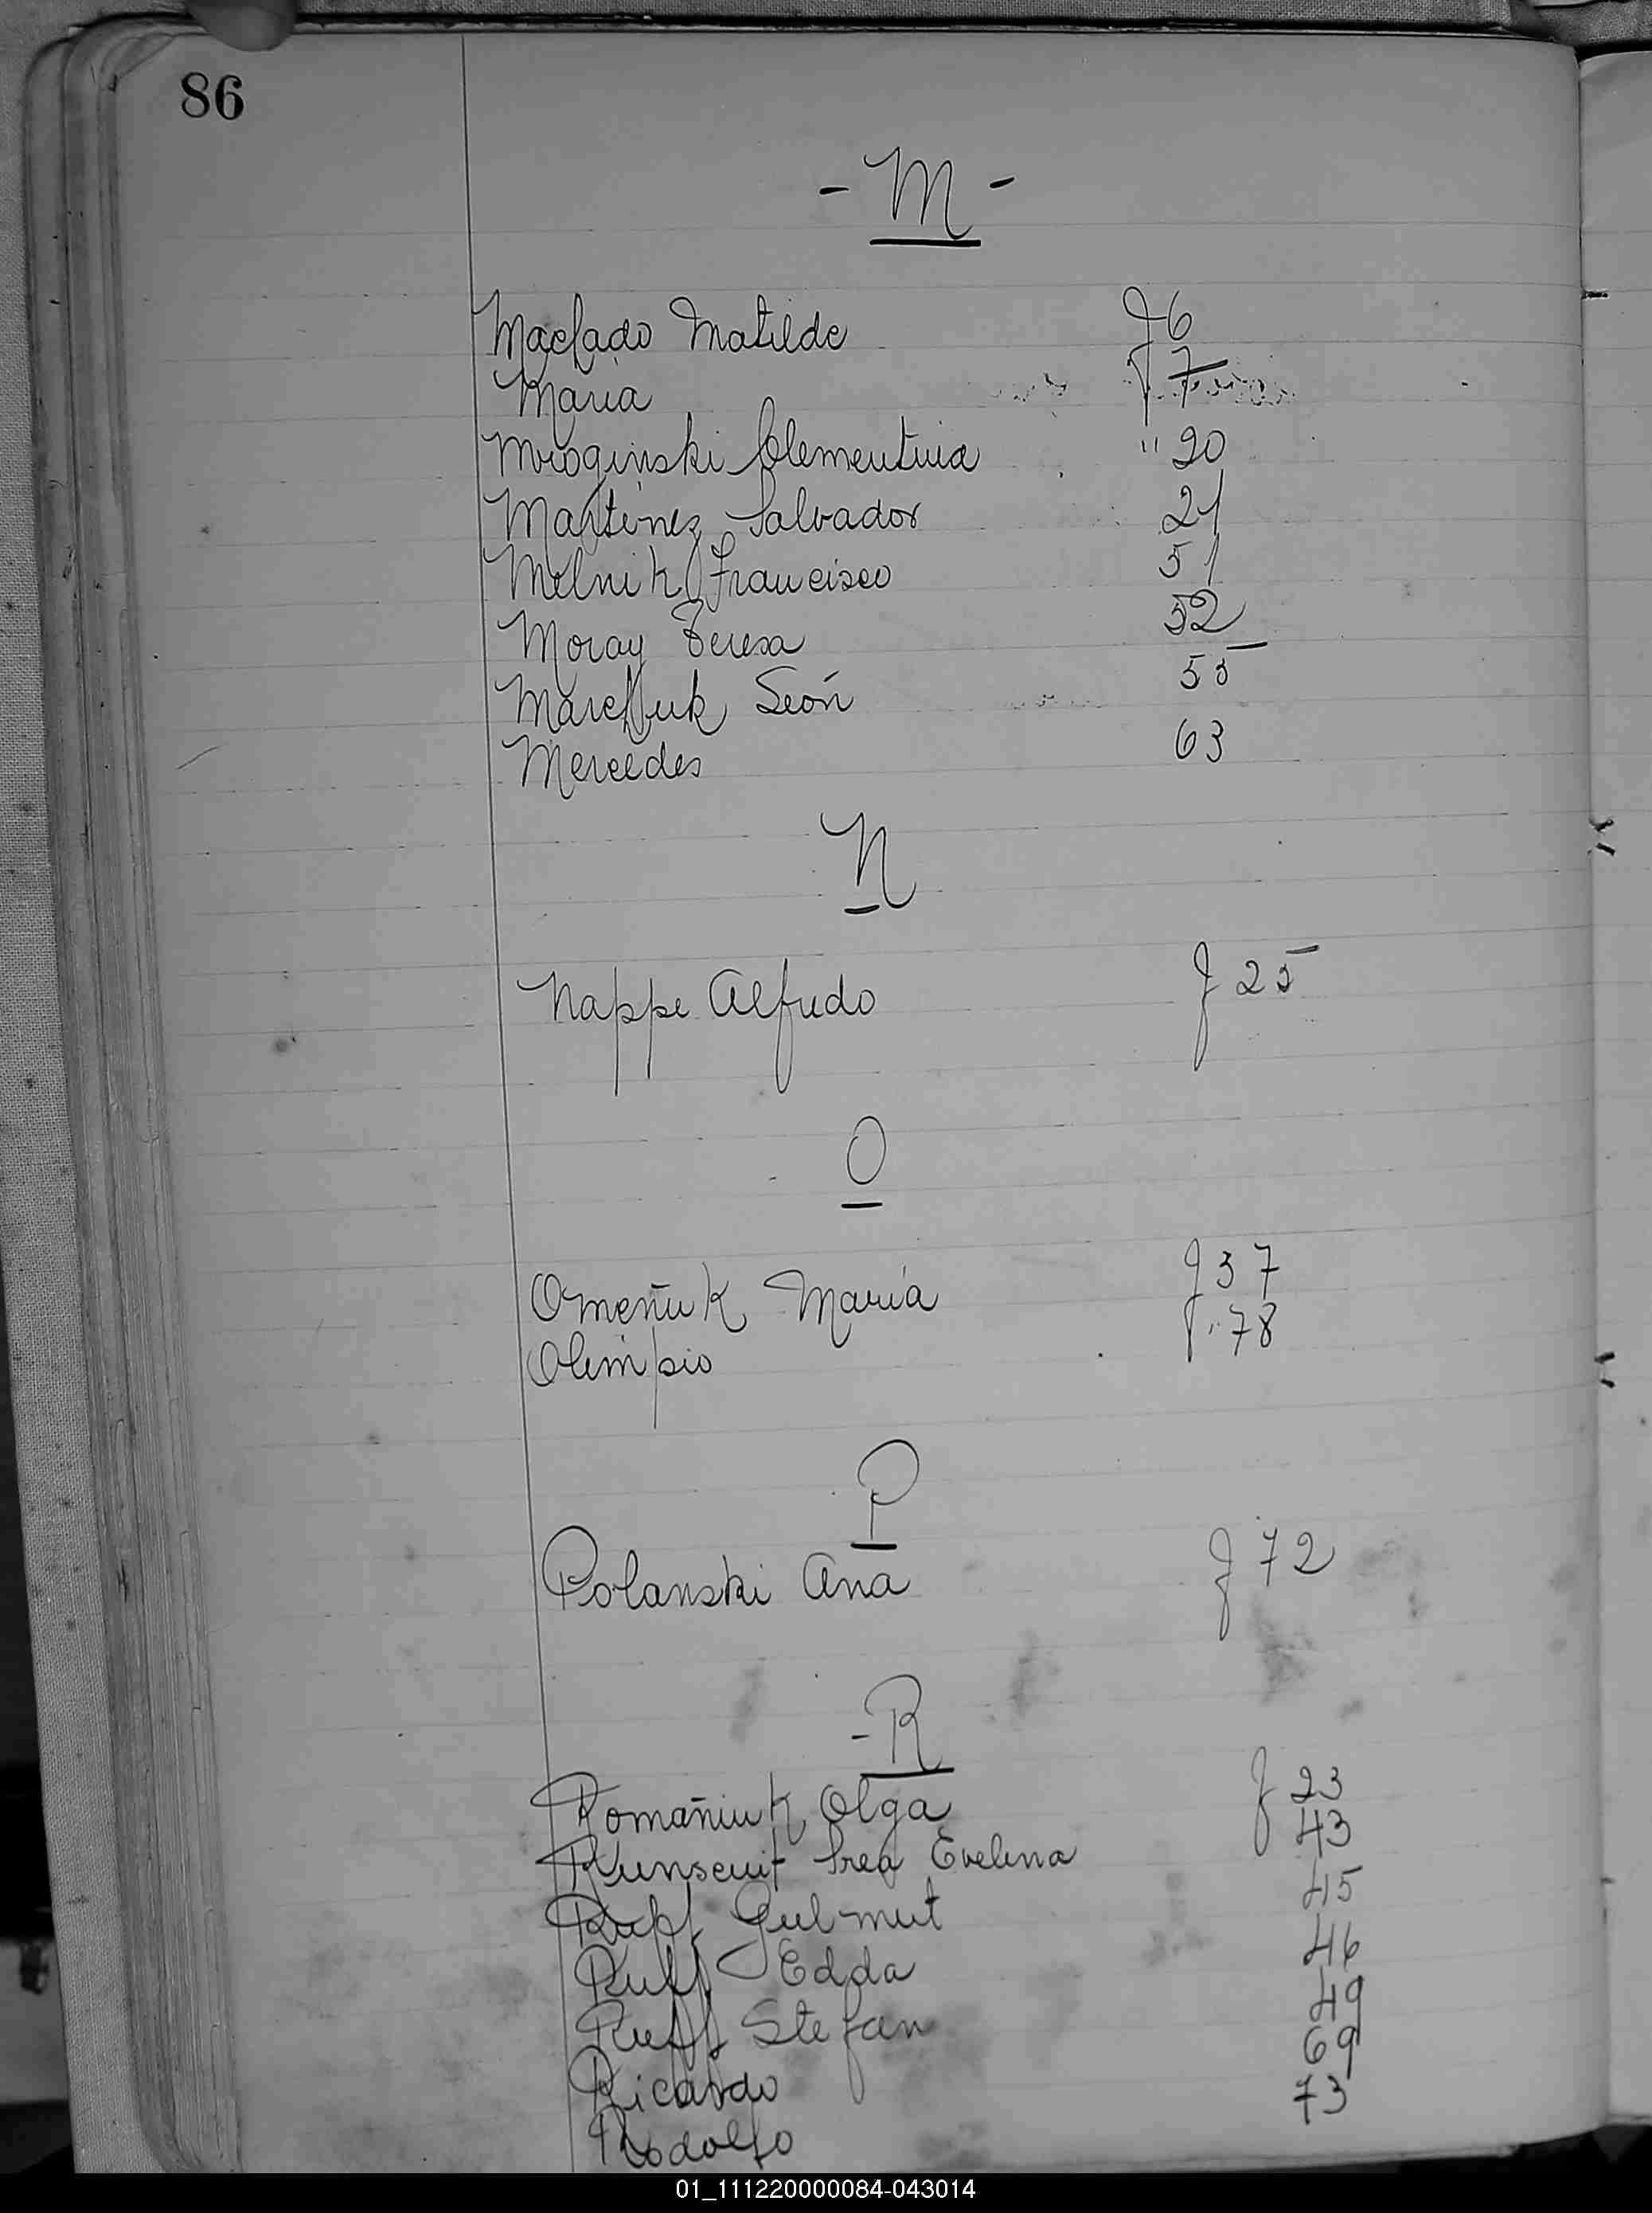 86
- M -
Machado Matilde f 6
Maria f 7
Mroginski Clementina " 20
Martinez Salvador 21
Melnik Francisco 51
Moray Teresa 52
Marchuk León 55
Mercedes 63
N
Nappe Alfredo f 25
O
Omeñuk María f 37
Olimpio f " 78
P
Polanski Ana f 72
- R
Romañiuk Olga f 23
Evelina 43
Ruff Gulmut 45
Ruff Edda 46
Ruff Stefan 49
Ricardo 69
Rodolfo 73
01_111220000084-043014